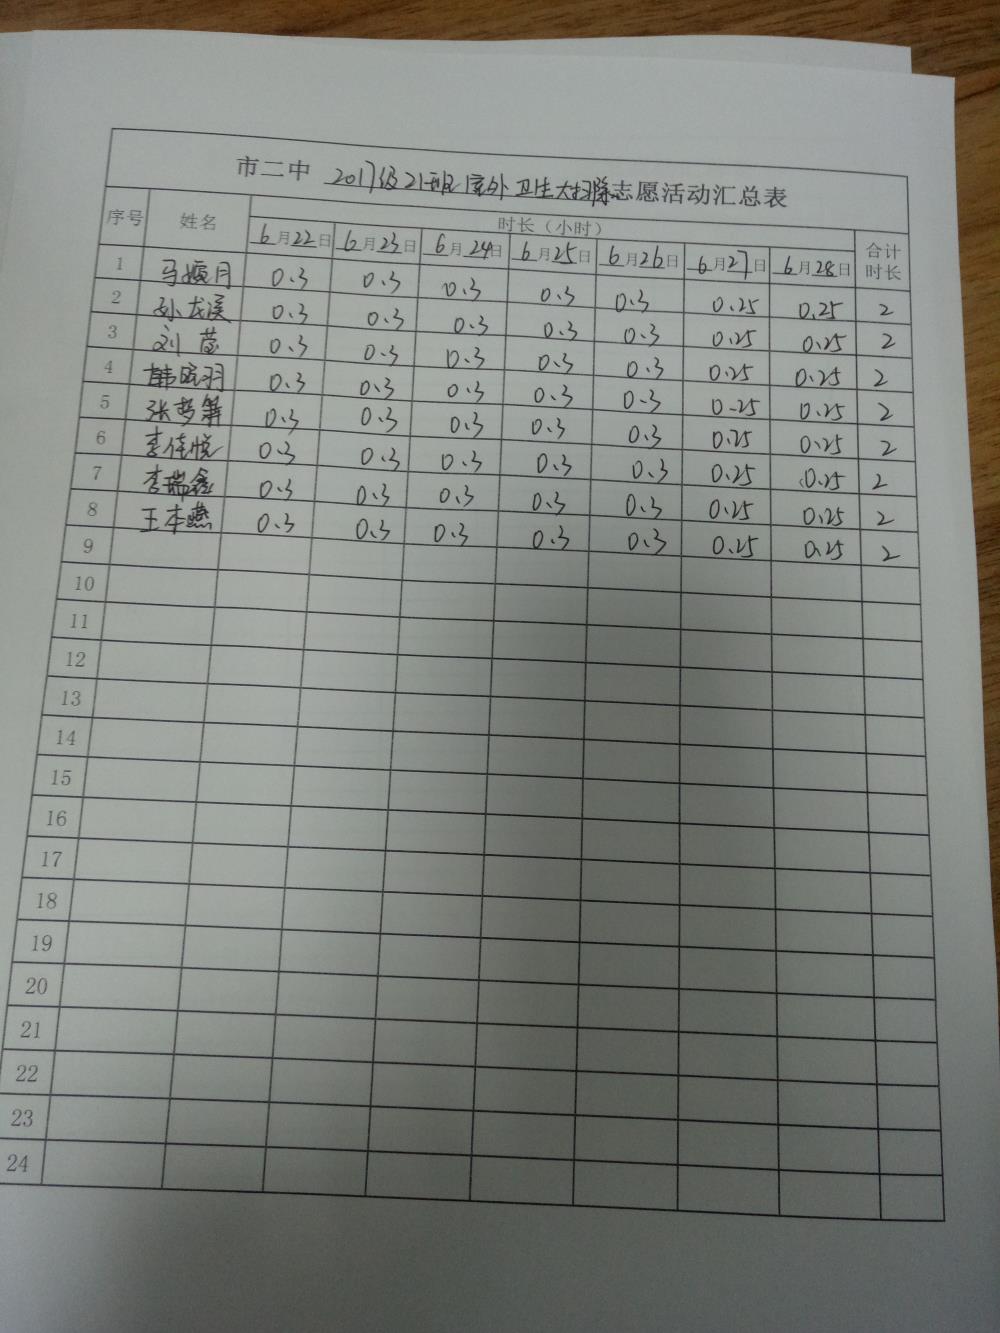 市二中 2017级21班室外卫生大扫除志愿活动汇总表
序号 姓名 时长（小时） 合计时长
6月22日 6月23日 6月24日 6月25日 6月26日 6月27日 6月28日
1 马媛月 0.3 0.3 0.3 0.3 0.3 0.25 0.25 2
2 孙龙溪 0.3 0.3 0.3 0.3 0.3 0.25 0.25 2
3 刘莹 0.3 0.3 0.3 0.3 0.3 0.25 0.25 2
4 韩晓羽 0.3 0.3 0.3 0.3 0.3 0.25 0.25 2
5 张梦 0.3 0.3 0.3 0.3 0.3 0.25 0.25 2
6 李佳悦 0.3 0.3 0.3 0.3 0.3 0.25 0.25 2
7 李瑞鑫 0.3 0.3 0.3 0.3 0.3 0.25 0.25 2
8 王本燕 0.3 0.3 0.3 0.3 0.3 0.25 0.25 2
9
10
11
12
13
14
15
16
17
18
19
20
21
22
23
24